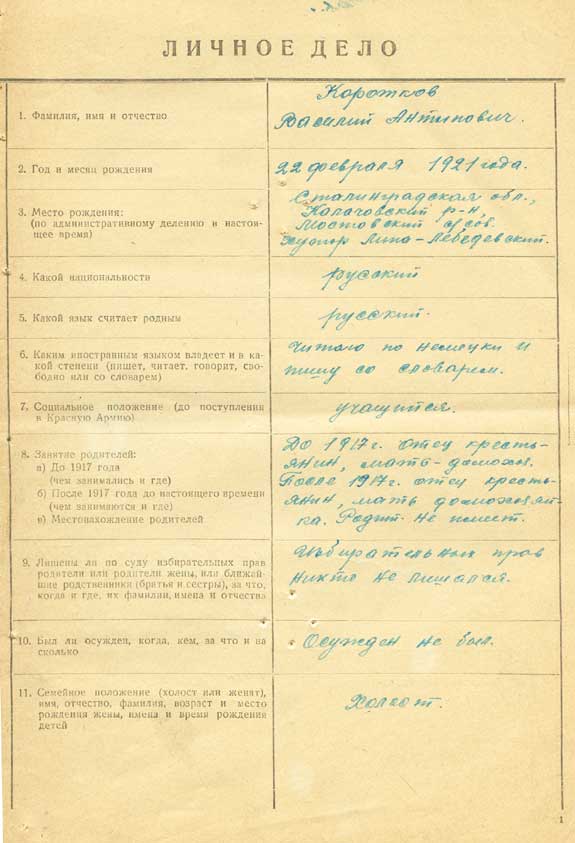 ЛИЧНОЕ ДЕЛО
1. Фамилия, имя и отчество
Коротков
Василий Антипович.
2. Год и месяц рождения
22 февраля 1921 года.
3. Место рождения:
(по административному делению в настоя-
щее время)
Сталинградская обл.,
Калачовский р-н,
Мостовский с/сов.
хутор Липо-Лебедевский.
4. Какой национальности
русский
5. Какой язык считает родным
русский.
6. Каким иностранным языком владеет и в ка-
кой степени (пишет, читает, говорит, сво-
бодно или со словарем)
Читаю по немецки и
пишу со словарем.
7. Социальное положение (до поступления
в Красную Армию)
учащийся.
8. Занятие родителей:
а) До 1917 года
(чем занимались и где)
б) После 1917 года до настоящего времени
(чем занимаются и где)
в) Местонахождение родителей
До 1917 г. отец кресть-
янин, мать - домохоз.
После 1917 г. отец кресть-
янин, мать домохозяй-
ка. Родит. не имеет.
9. Лишены ли по суду избирательных прав
родители или родители жены, или ближай-
шие родственники (братья и сестры), за что,
когда и где, их фамилии, имена и отчества
Избирательных прав
никто не лишался.
10. Был ли осужден, когда, кем, за что и на
сколько
Осужден не был.
11. Семейное положение (холост или женат),
имя, отчество, фамилия, возраст и место
рождения жены, имена и время рождения
детей
Холост.
1